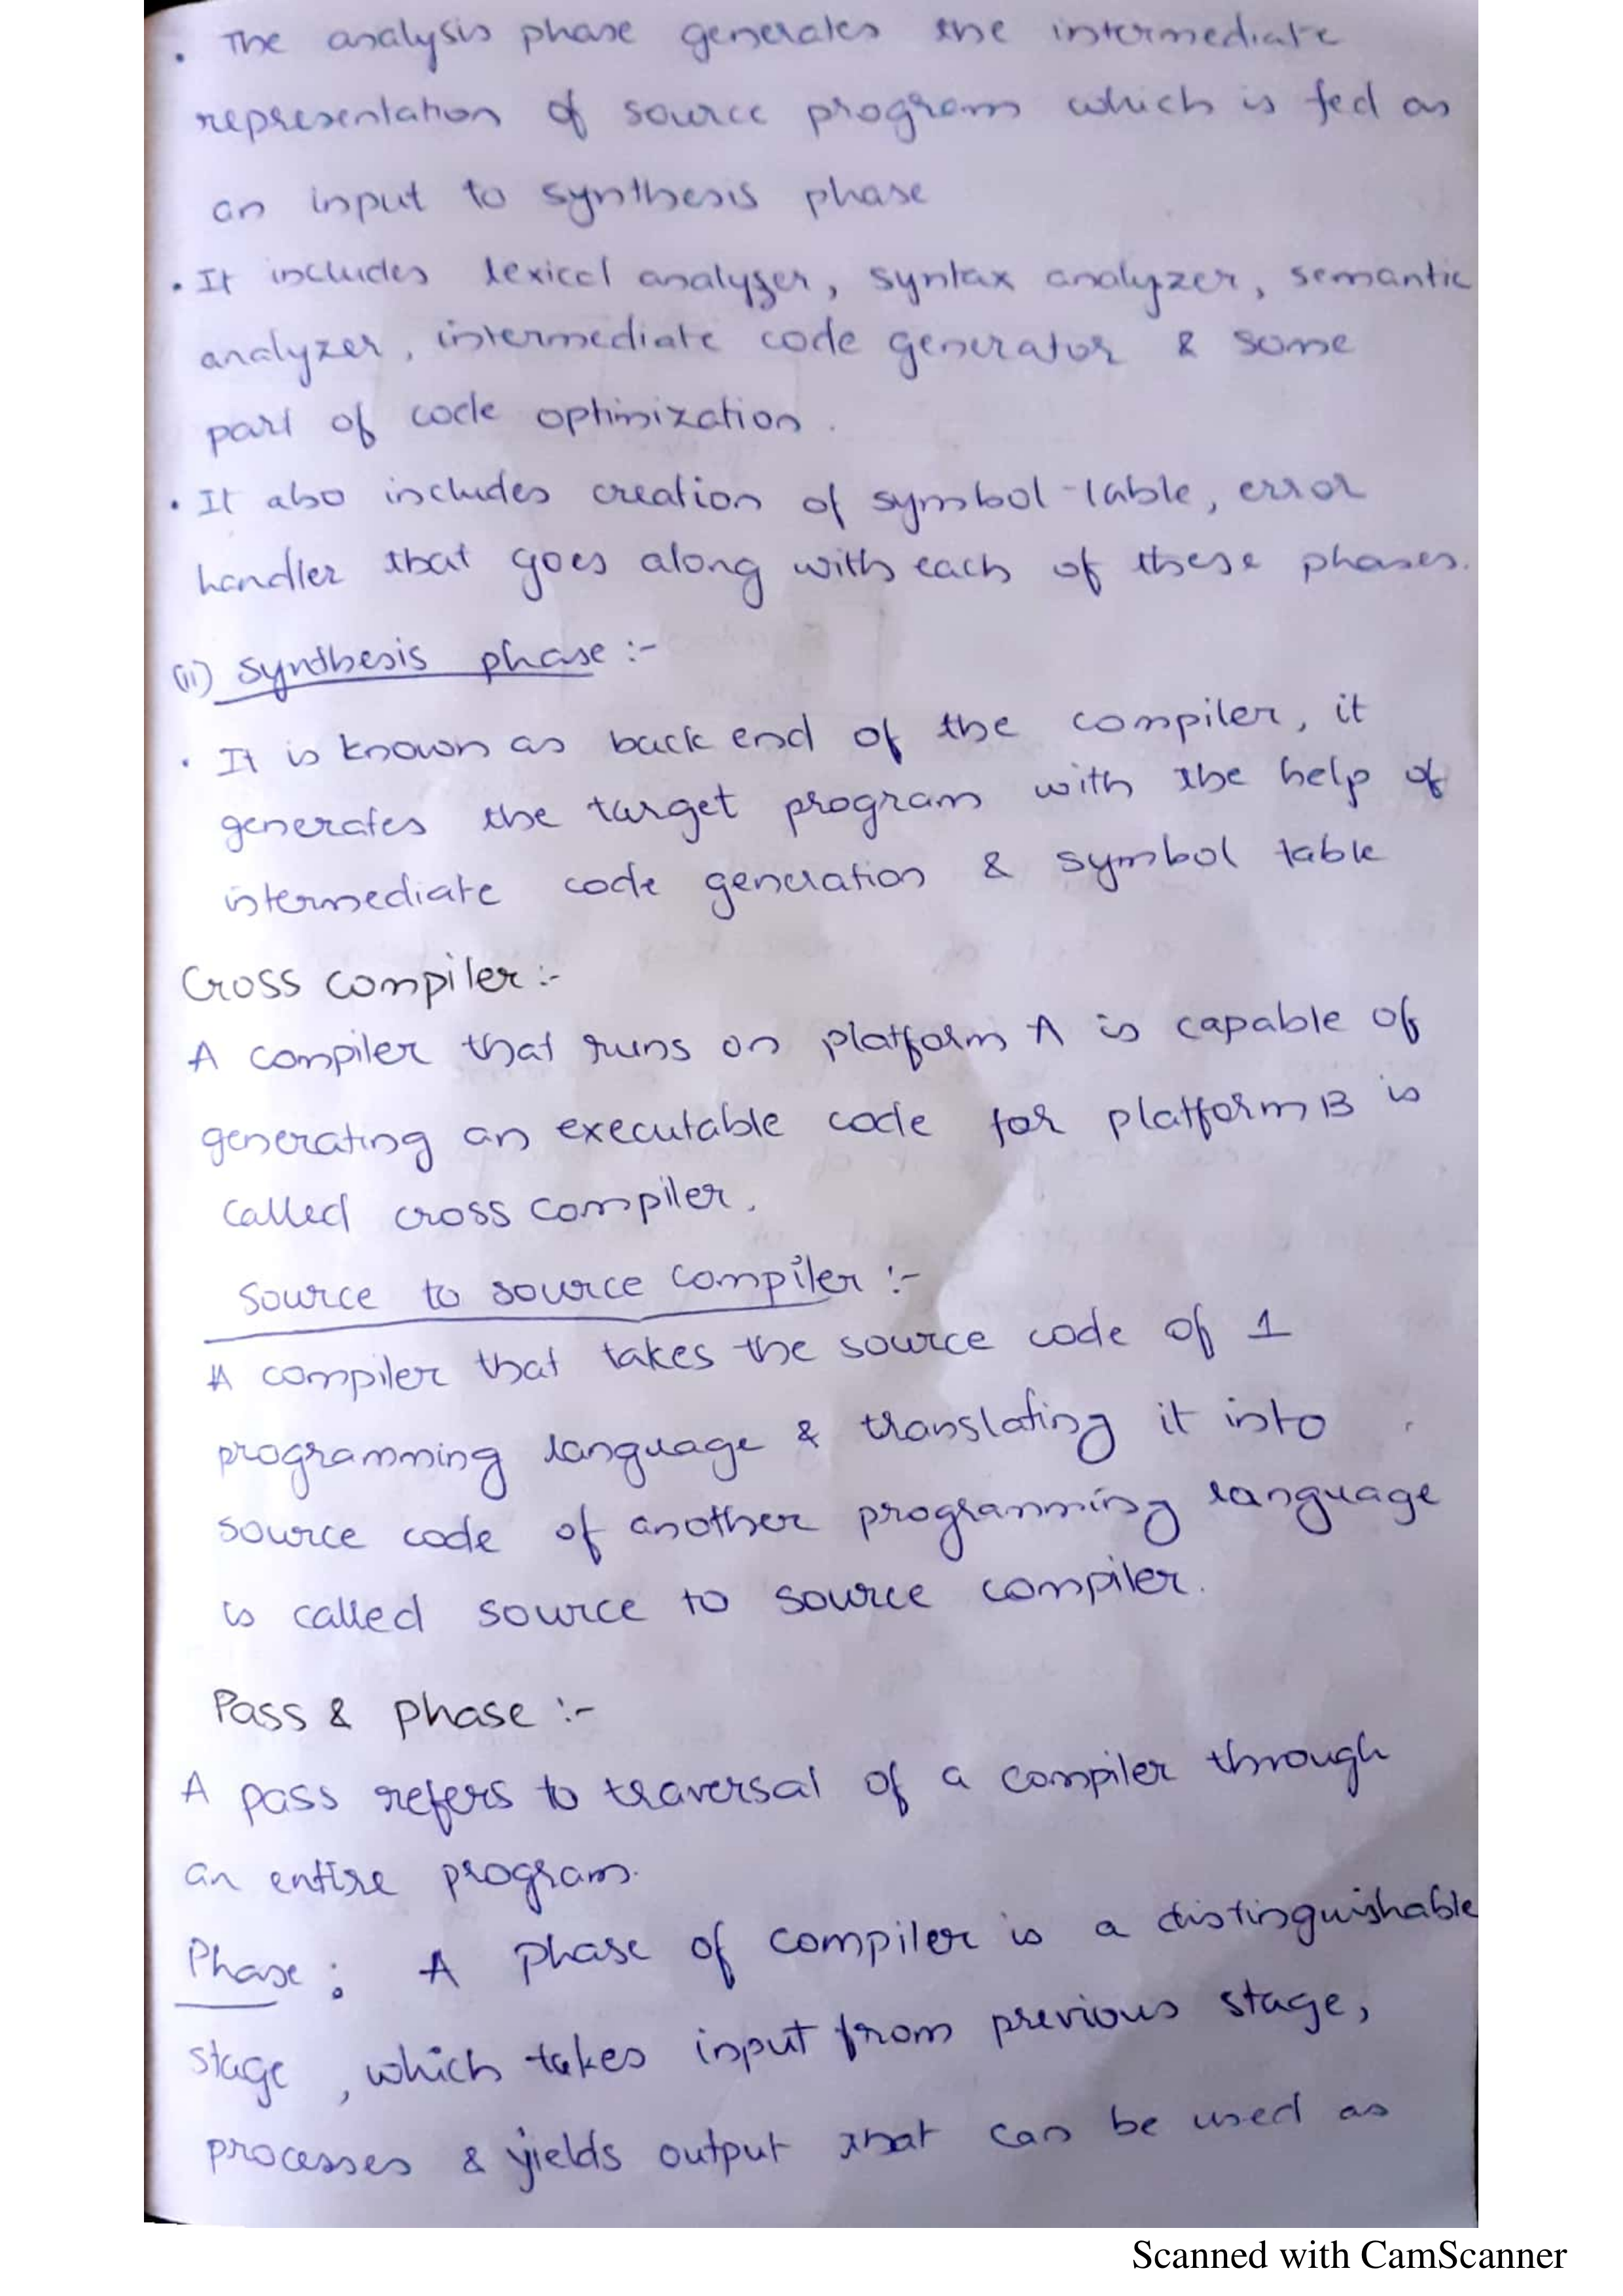 . The analysis phase generates the intermediate
representation of source program which is fed as
an input to synthesis phase
. It includes lexical analyzer, syntax analyzer, semantic
analyzer, intermediate code generator & some
part of code optimization.
. It also includes creation of symbol-table, error
handler that goes along with each of these phases.
(ii) Synthesis phase :-
. It is known as back end of the compiler, it
generates the target program with the help of
intermediate code generation & symbol table
Cross compiler :-
A compiler that runs on platform A is capable of
generating an executable code for platform B is
called cross compiler.
Source to source compiler :-
A compiler that takes the source code of 1
programming language & translating it into
source code of another programming language
is called source to source compiler.
Pass & phase :-
A pass refers to traversal of a compiler through
an entire program.
Phase : A phase of compiler is a distinguishable
stage, which takes input from previous stage,
processes & yields output that can be used as
Scanned with CamScanner